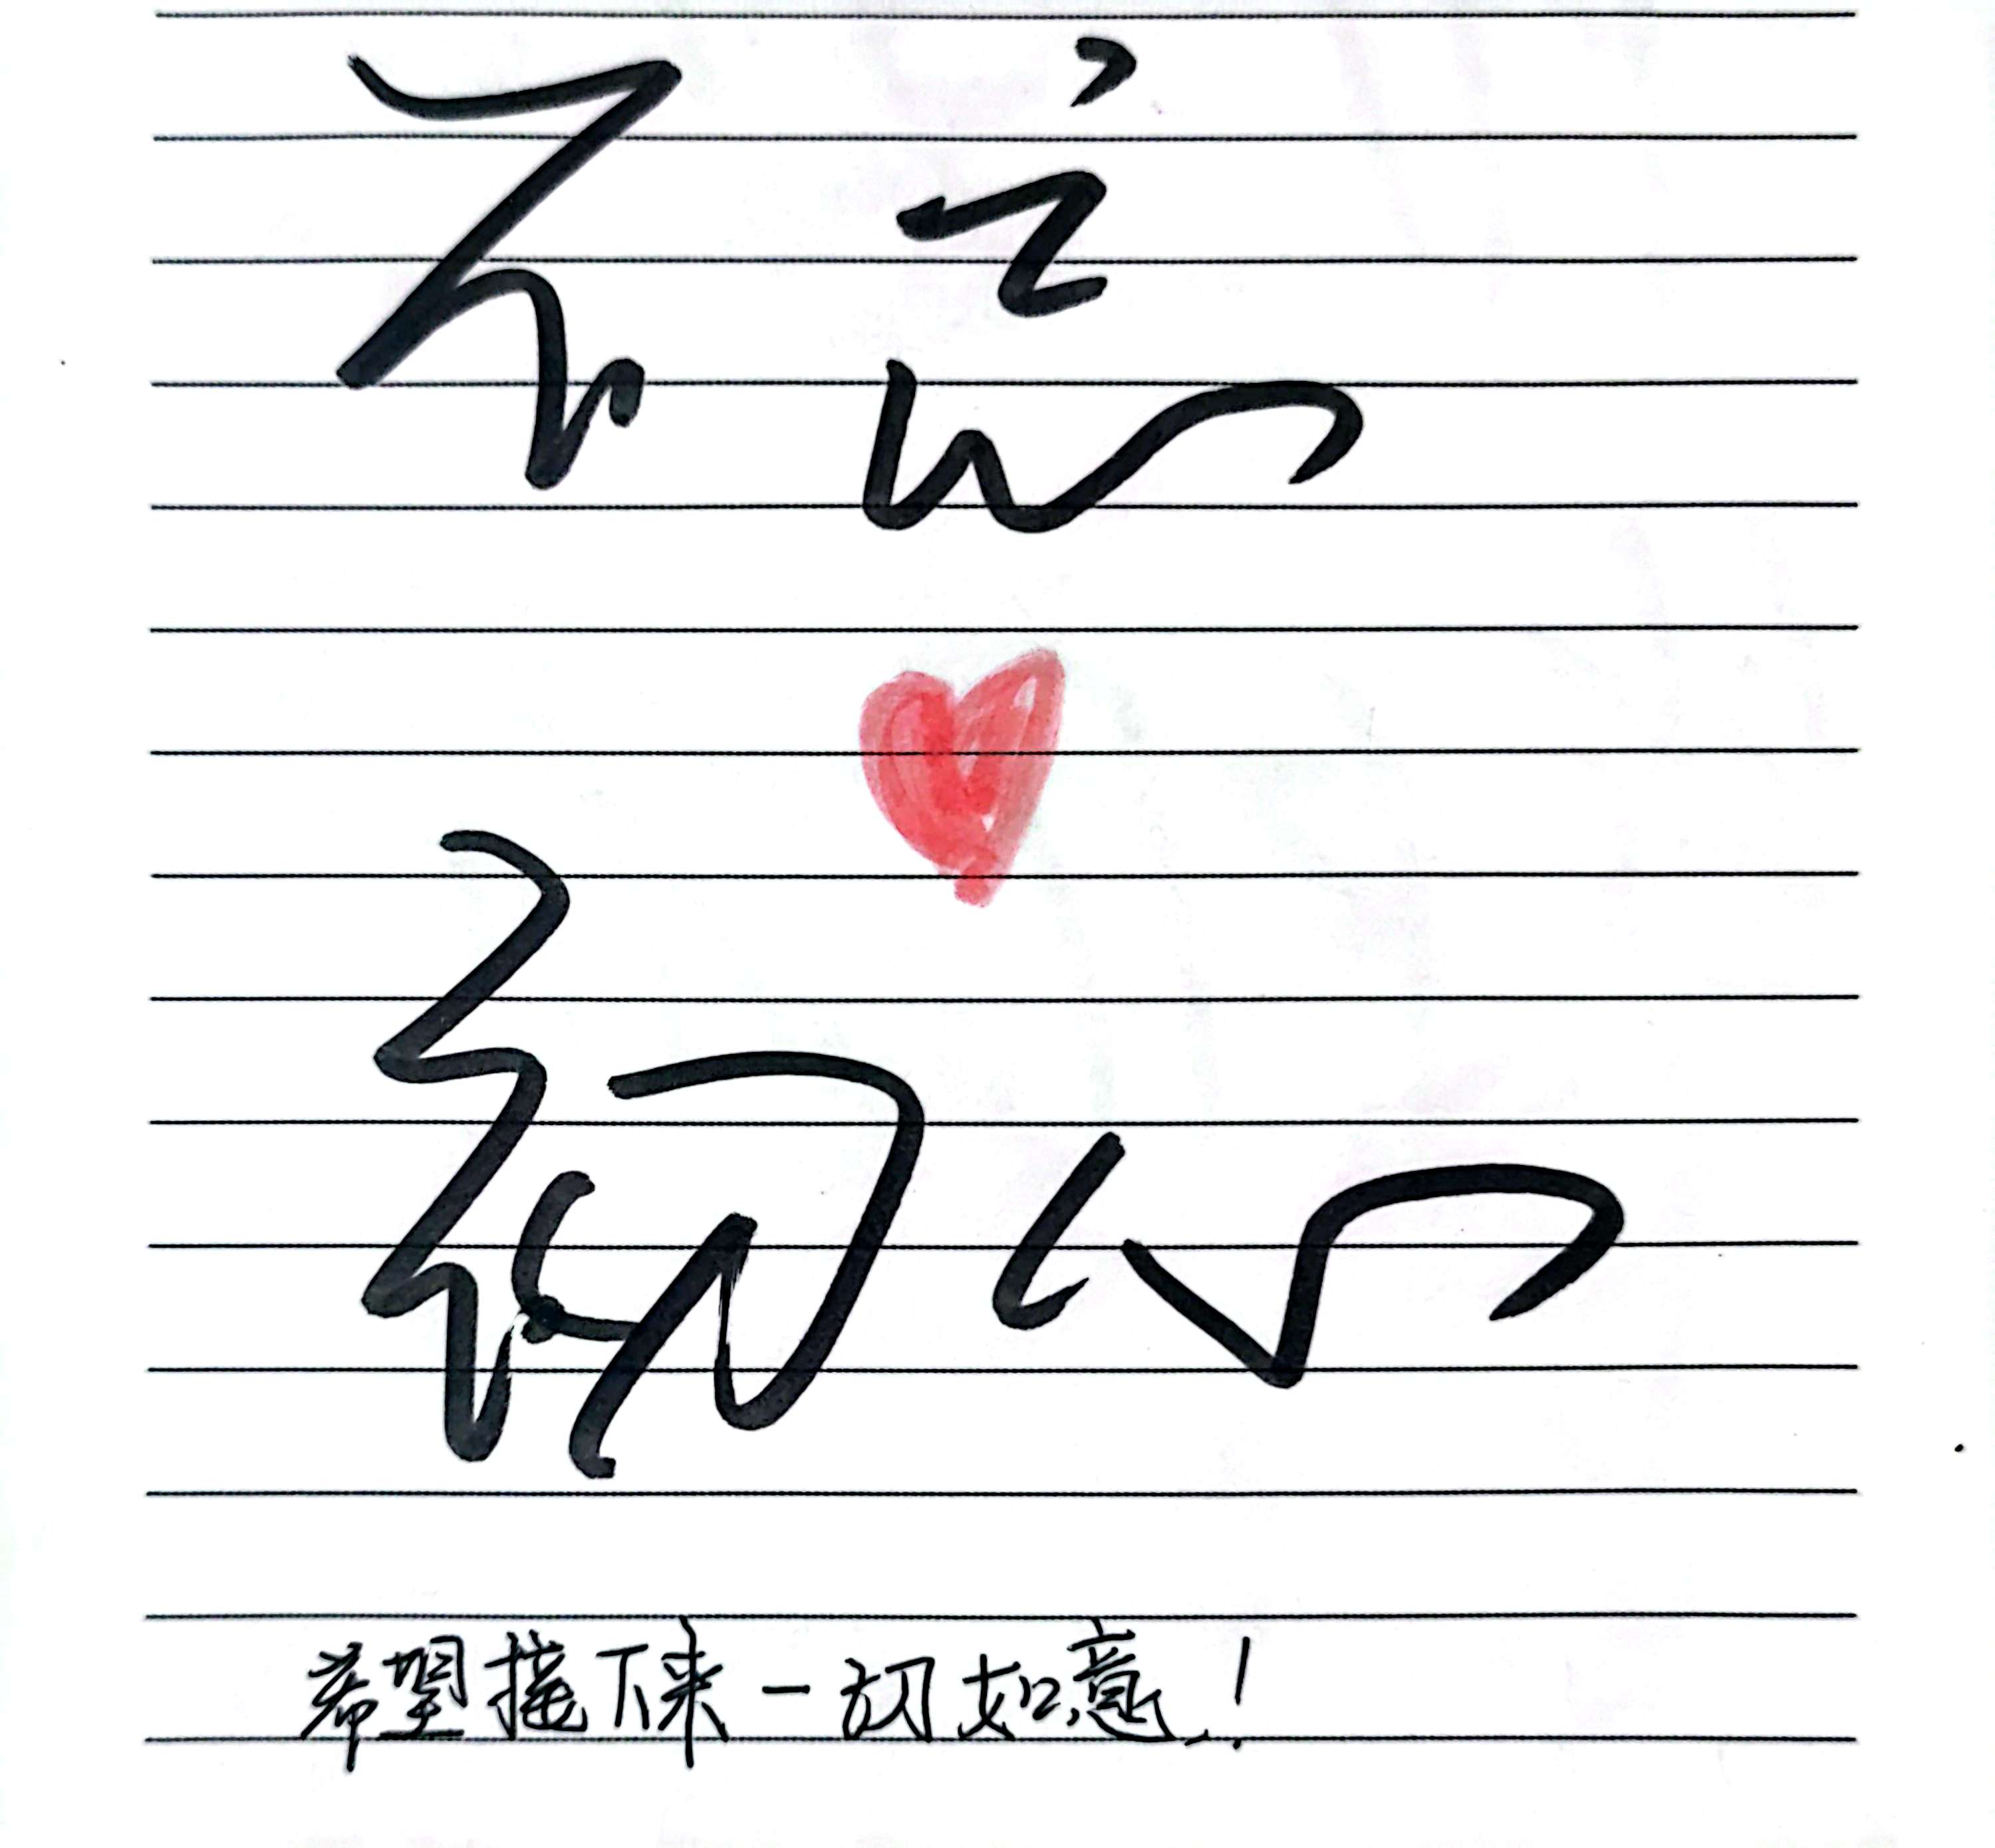 不忘
初心
希望接下来一切如意！